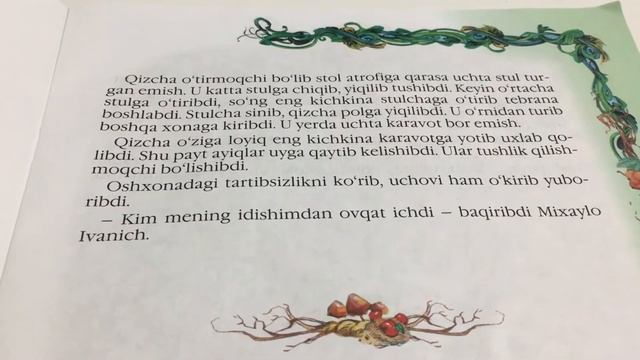 Qizcha o‘tirmoqchi bo‘lib stol atrofiga qarasa uchta stul tur-
gan emish. U katta stulga chiqib, yiqilib tushibdi. Keyin o‘rtacha
stulga o‘tiribdi, so‘ng eng kichkina stulchaga o‘tirib tebrana
boshlabdi. Stulcha sinib, qizcha polga yiqilibdi. U o‘rnidan turib
boshqa xonaga kiribdi. U yerda uchta karavot bor emish.
Qizcha o‘ziga loyiq eng kichkina karavotga yotib uxlab qo-
libdi. Shu payt ayiqlar uyga qaytib kelishibdi. Ular tushlik qilish-
moqchi bo‘lishibdi.
Oshxonadagi tartibsizlikni ko‘rib, uchovi ham o‘kirib yubo-
ribdi.
– Kim mening idishimdan ovqat ichdi – baqiribdi Mixaylo
Ivanich.